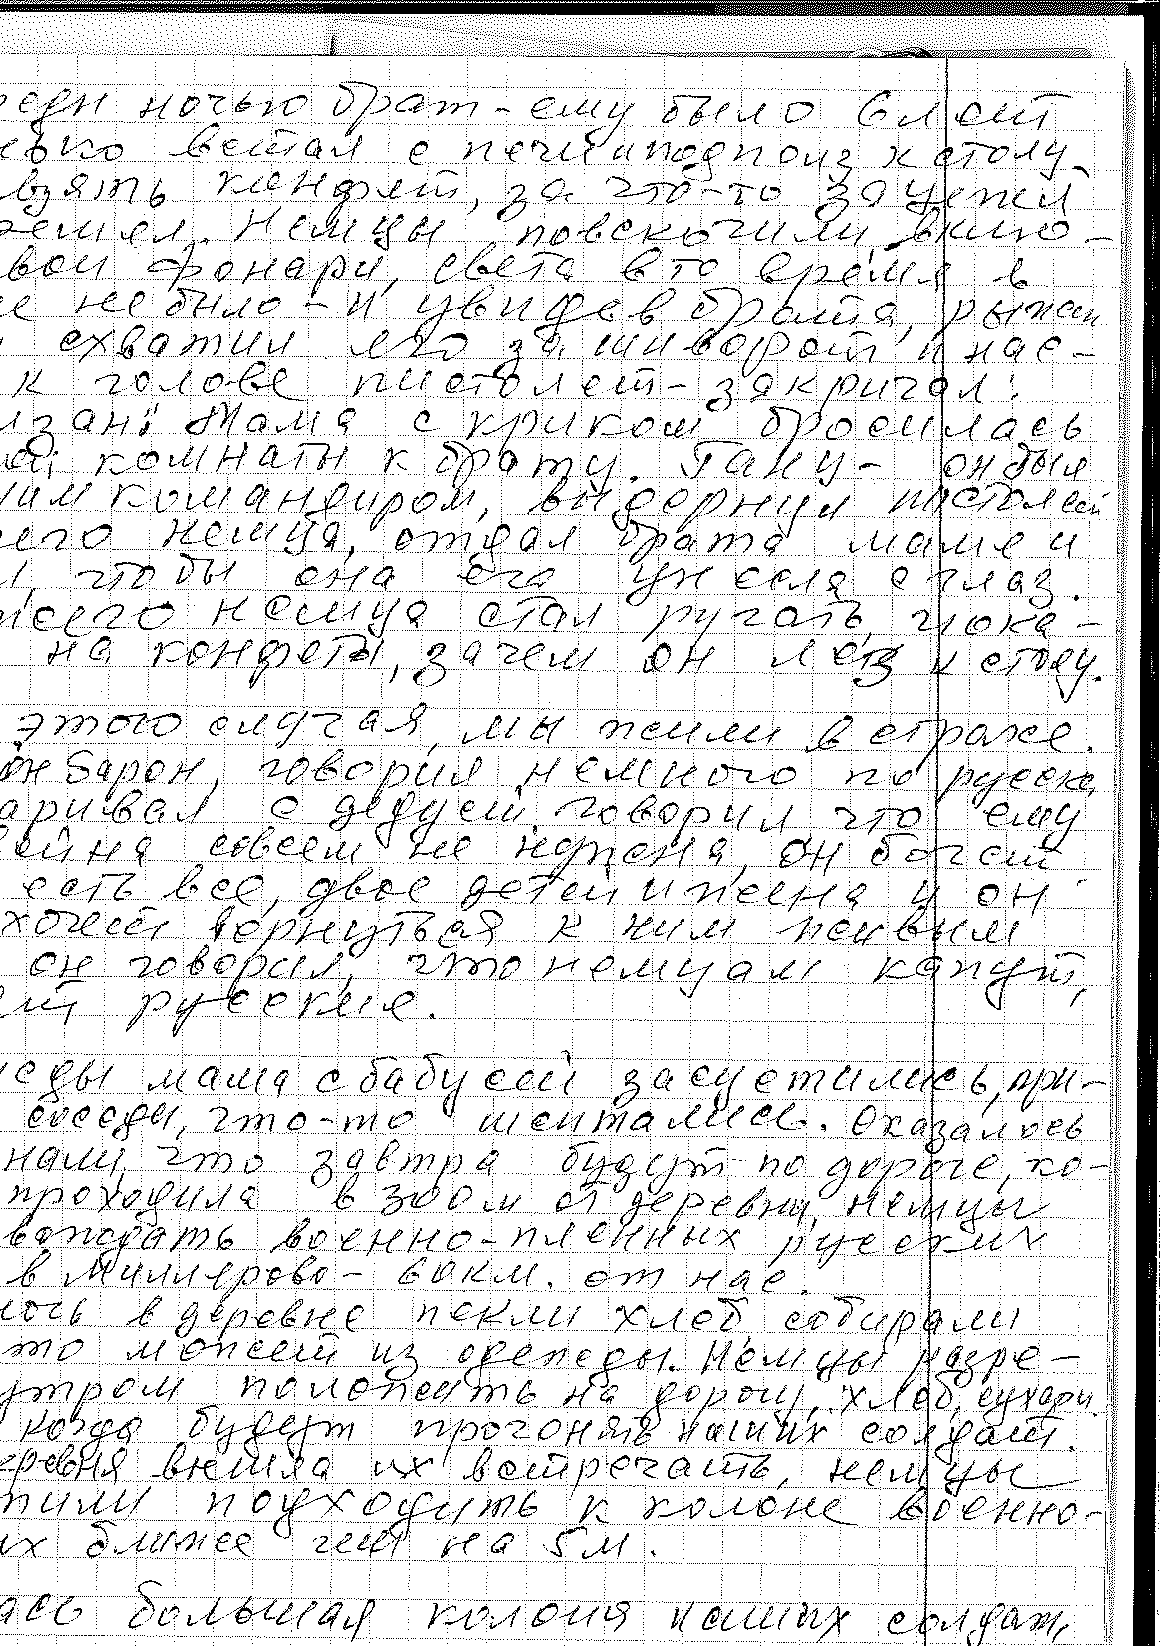 реди ночью брат - ему было 6 лет
встал с печи и подполз к столу
взять конфет, за что-то зацепел
Немцы повскочили, вклю-
вои фонари, света в то время в
не было - и увидев брата, рыжи
схватил его за шиворот и нас-
к голове пистолет - закричал:
изан!" Мама с криком бросилась
комнаты к брату. Гану- он был
ним командиром, выдернул пистолет
его немца, отдал брата маме и
л, чтобы она его унесла с глаз.
жего немца стал ругать, пока-
на конфеты, зачем он лез к столу.
этого случая, мы жили в страхе.
он Барон, говорил немного по русски,
аривал с дедуей, говорил что ему
война совсем не нужна, он богат
есть все, двое детей и жена и он
хочет вернуться к ним живым
он говорил, что немцам капут,
русские.
еды мама с бабусей засуетились, при-
соседи, что-то шептались. Оказалось
нали, что завтра будут по дороге, ко-
проходила в 300 м от деревни, немцы
военно-пленных русских
в Миллерово - 60 км. от нас.
лось в деревне пекли хлеб, собирали
то может из одежды. Немцы разре-
утром положить на дорогу, хлеб, сухари
когда будут прогонять наших солдат.
еревня вышла их встречать, немцы
тили подходить к колоне военно-
их ближе чем на 5 м.
ась большая колоня наших солдат,